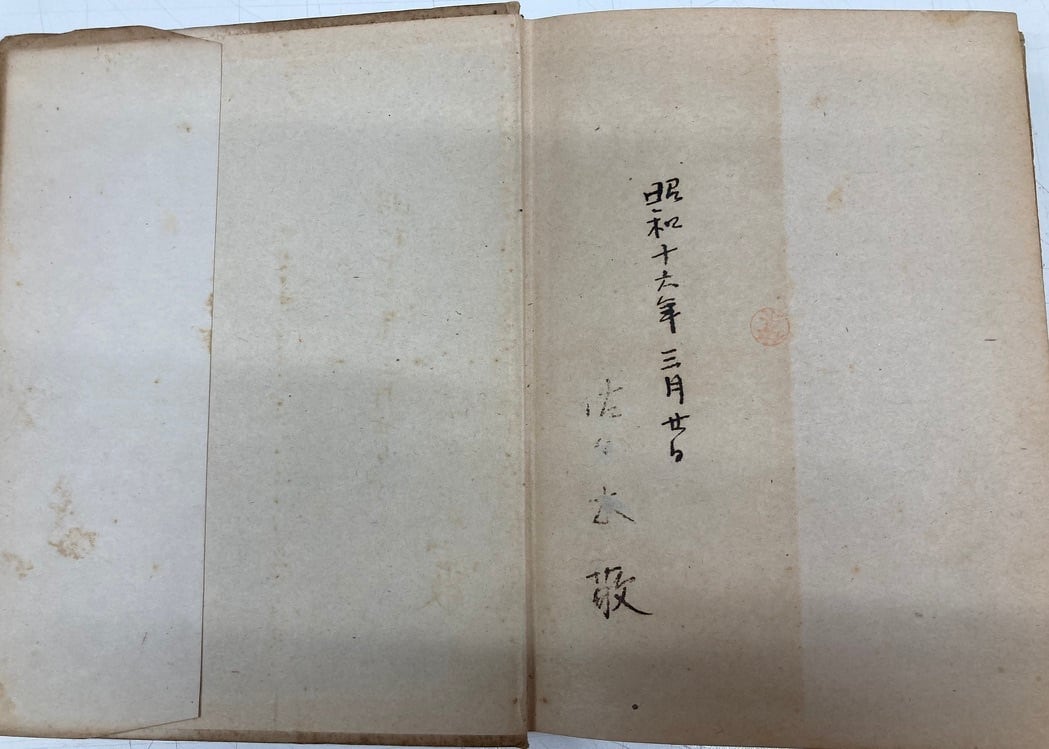 昭和十六年三月廿日
佐々木敬